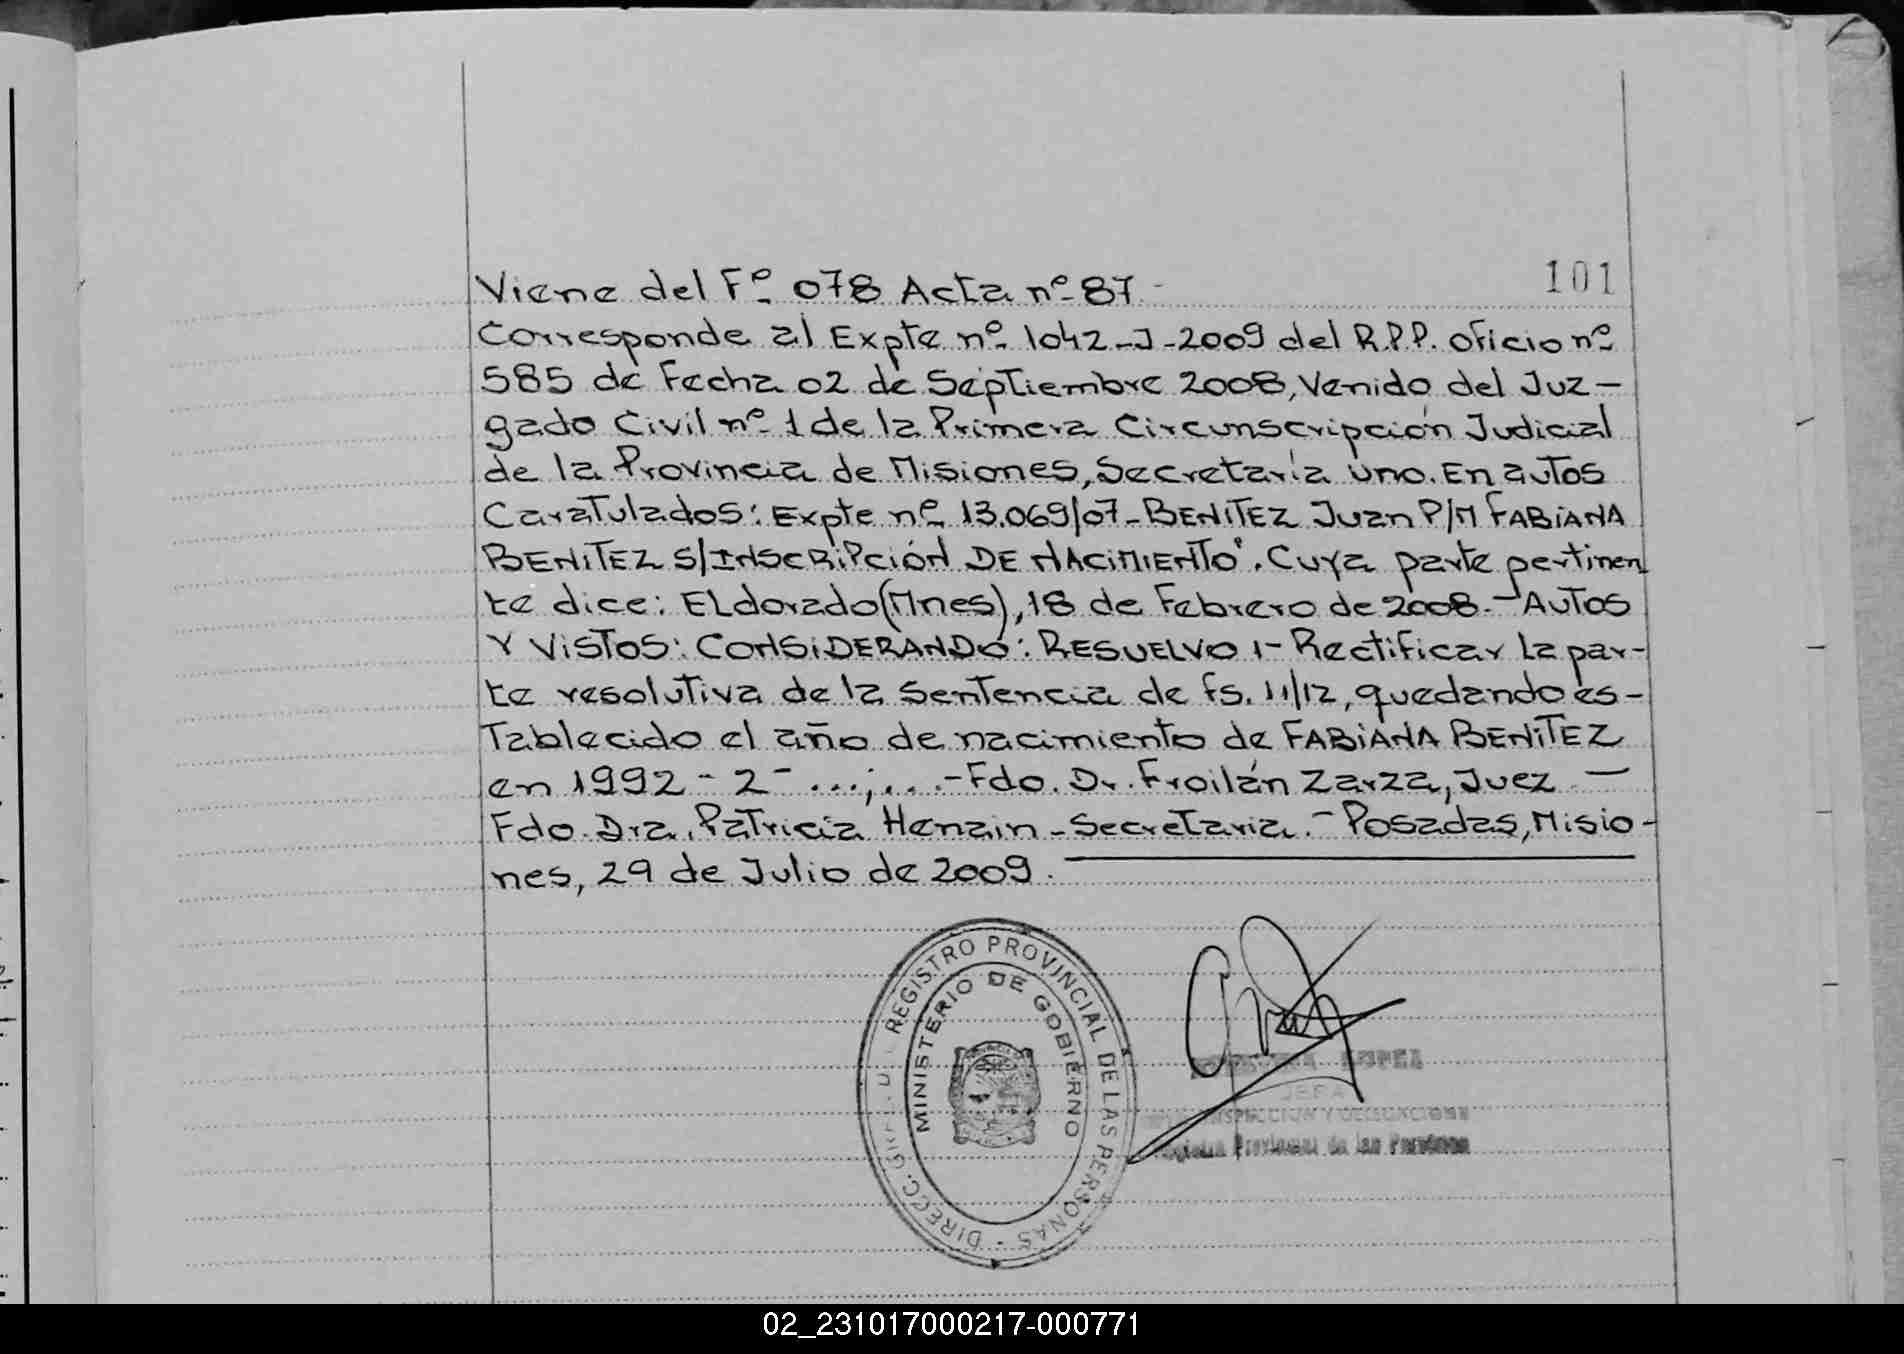 101
Viene del Fº 078 Acta nº 87.-
Corresponde al Expte nº 1042-J-2009 del R.P.P. oficio nº
585 de Fecha 02 de Septiembre 2008, Venido del Juz-
gado Civil nº 1 de la Primera Circunscripción Judicial
de la Provincia de Misiones, Secretaría uno. En autos
Caratulados: Expte nº 13.069/07-BENITEZ Juan P/M FABIANA
BENITEZ S/INSCRIPCIÓN DE NACIMIENTO". Cuya parte pertinen
te dice: ELdorado(Mnes), 18 de Febrero de 2008.- AUTOS
Y VISTOS: CONSIDERANDO: RESUELVO 1- Rectificar La par-
te resolutiva de la Sentencia de fs. 11/12, quedando es-
Tablecido el año de nacimiento de FABIANA BENITEZ
en 1992 - 2- ...;...-Fdo. Dr. Froilán Zarza, Juez. —
Fdo. Dra. Patricia Henain-Secretaria.- Posadas, Misio-
nes, 29 de Julio de 2009.
DIRECC. GRAL. DEL REGISTRO PROVINCIAL DE LAS PERSONAS -
MINISTERIO DE GOBIERNO
JEFA
INSPECCION Y DELEGACIONES
Registro Provincial de las Personas
02_231017000217-000771